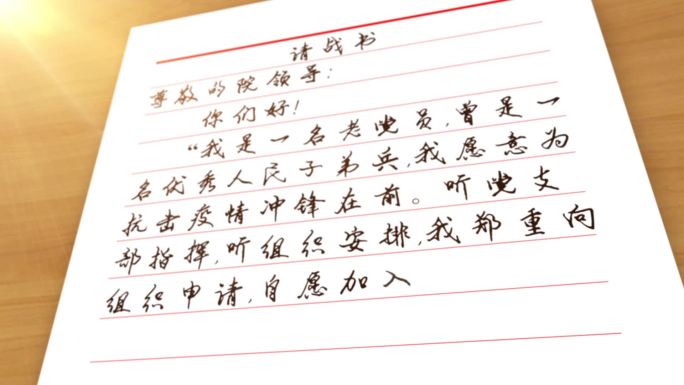 请战书
尊敬的院领导：
你们好！
“我是一名老党员，曾是一
名优秀人民子弟兵，我愿意为
抗击疫情冲锋在前。听党支
部指挥，听组织安排，我郑重向
组织申请，自愿加入